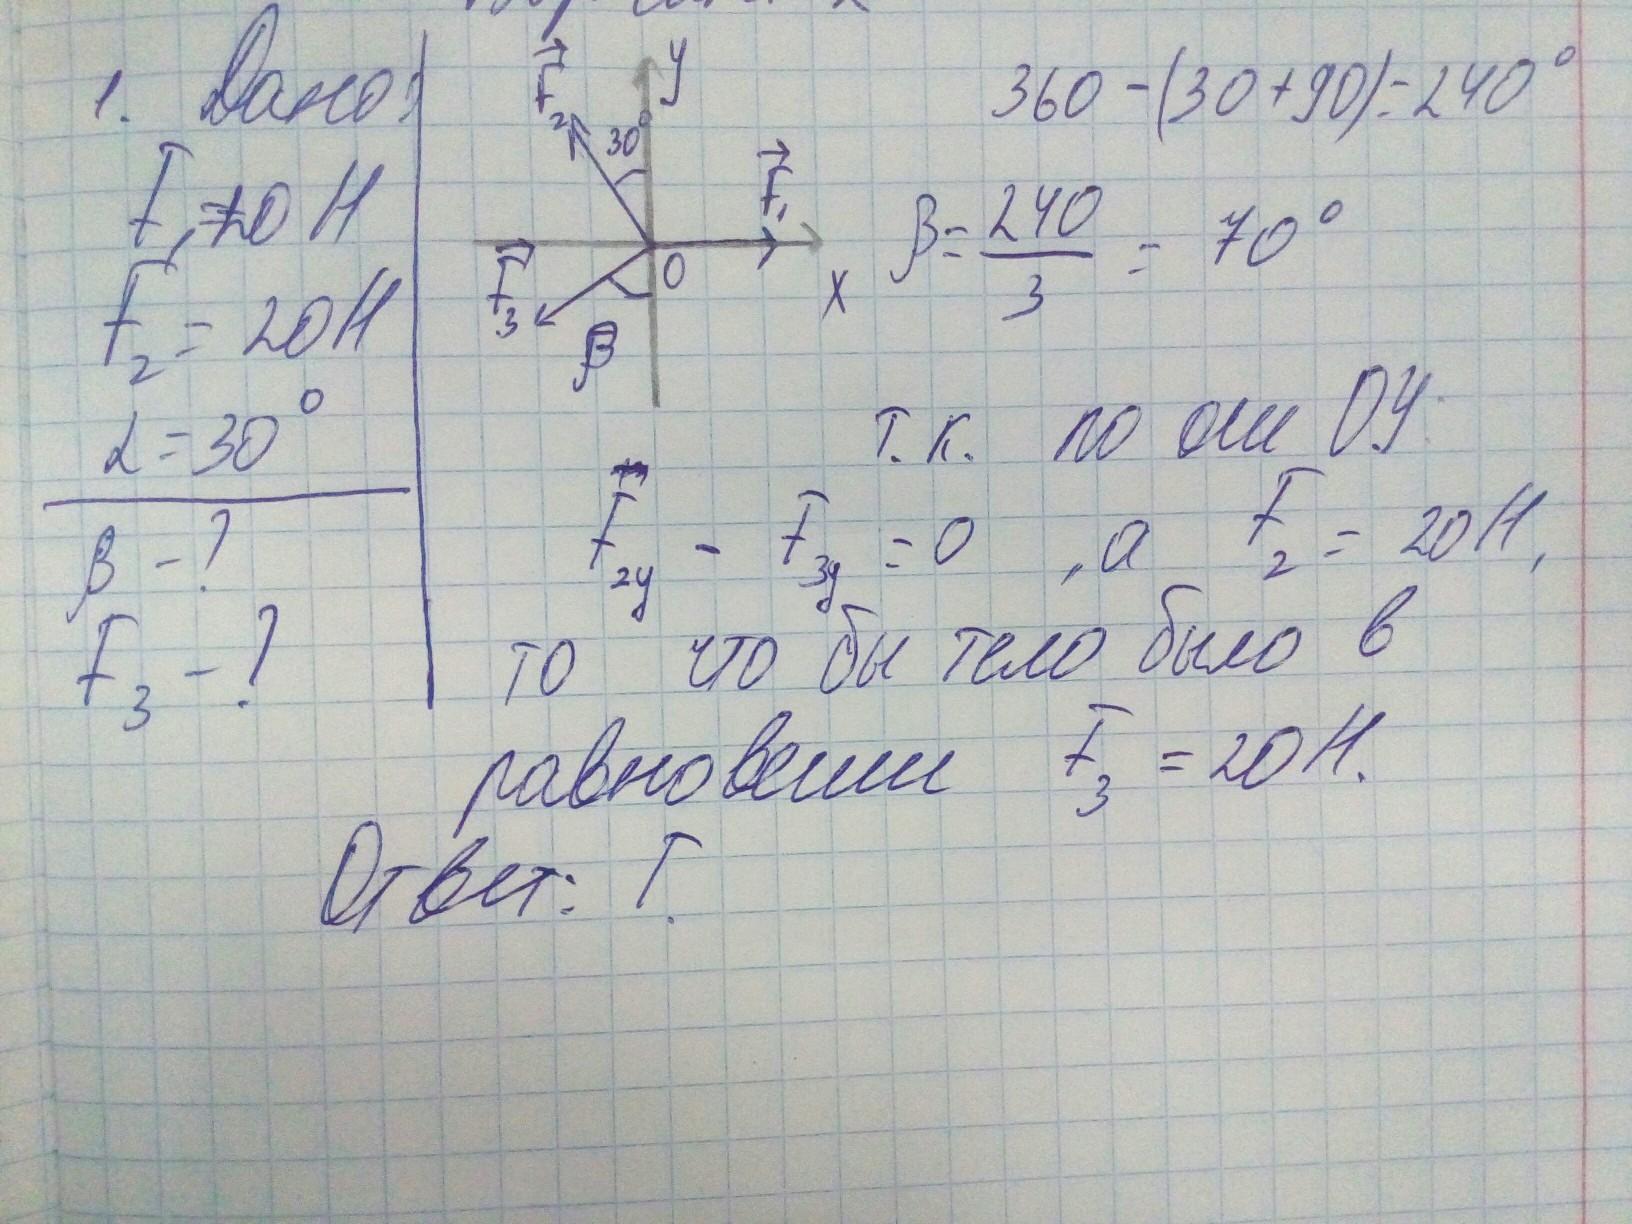 1. Дано:
F₁ = 10 Н
F₂ = 20 Н
α = 30°
β - ?
F₃ - ?
F₂
y
30°
F₁
F₃
0
x
β
360 - (30 + 90) = 240°
β = 240/3 = 70°
т.к. по оси ОУ:
F₂y - F₃y = 0 , а F₂ = 20 Н,
то что бы тело было в
равновесии F₃ = 20 Н.
Ответ: Г.